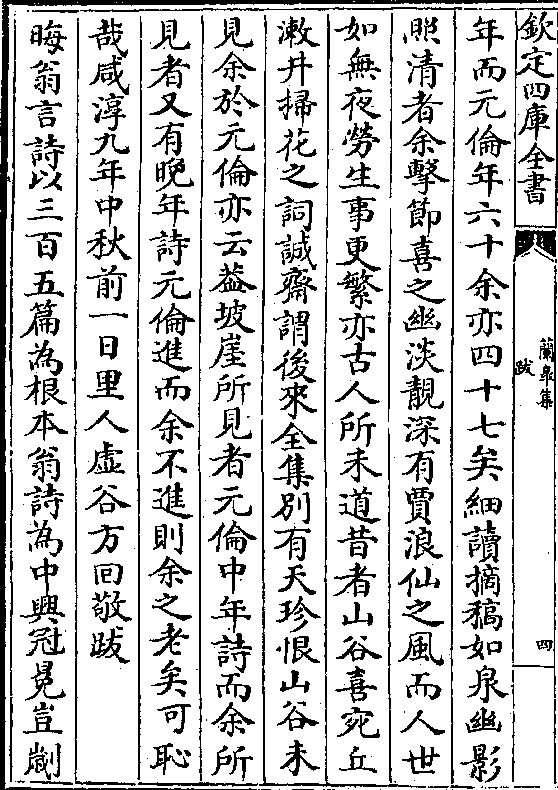 欽定四庫全書
蘭皐集
跋
四
年而元倫年六十余亦四十七矣細讀摘稿如泉幽影
照清者余擊節喜之幽淡靚深有賈浪仙之風而人世
如無夜勞生事更繁亦古人所未道昔者山谷喜宛丘
漱井掃花之詞誠齋謂後來全集別有天珍恨山谷未
見余於元倫亦云葢坡崖所見者元倫中年詩而余所
見者又有晚年詩元倫進而余不進則余之老矣可恥
哉咸淳九年中秋前一日里人虛谷方回敬跋
晦翁言詩以三百五篇為根本翁詩為中興冠冕豈